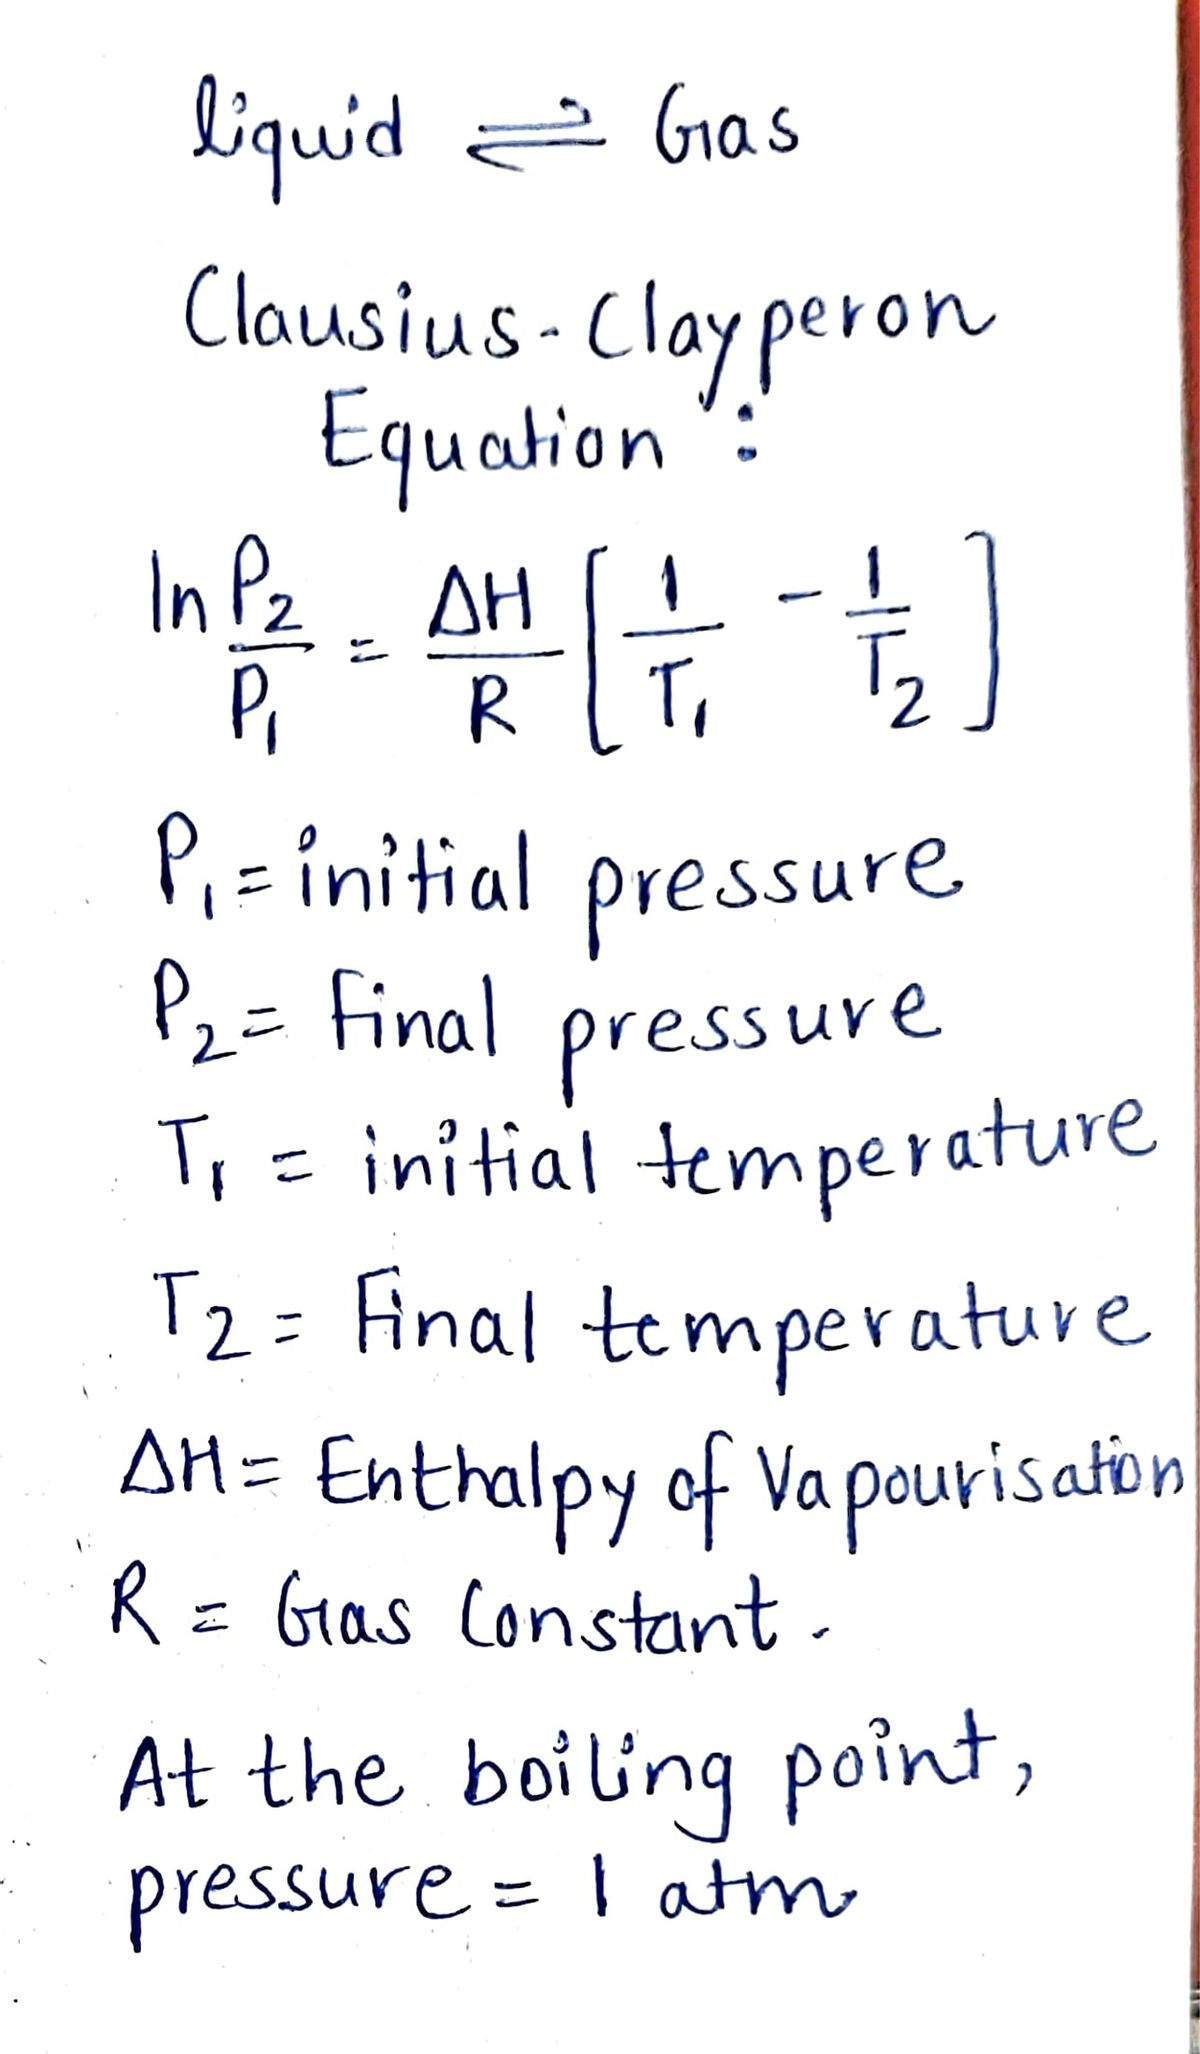 liquid ⇌ Gas
Clausius-Clayperon
Equation :
ln P₂/P₁ = ΔH/R [1/T₁ - 1/T₂]
P₁ = initial pressure
P₂ = Final pressure
T₁ = initial temperature
T₂ = Final temperature
ΔH = Enthalpy of Vapourisation
R = Gas Constant.
At the boiling point,
pressure = 1 atm